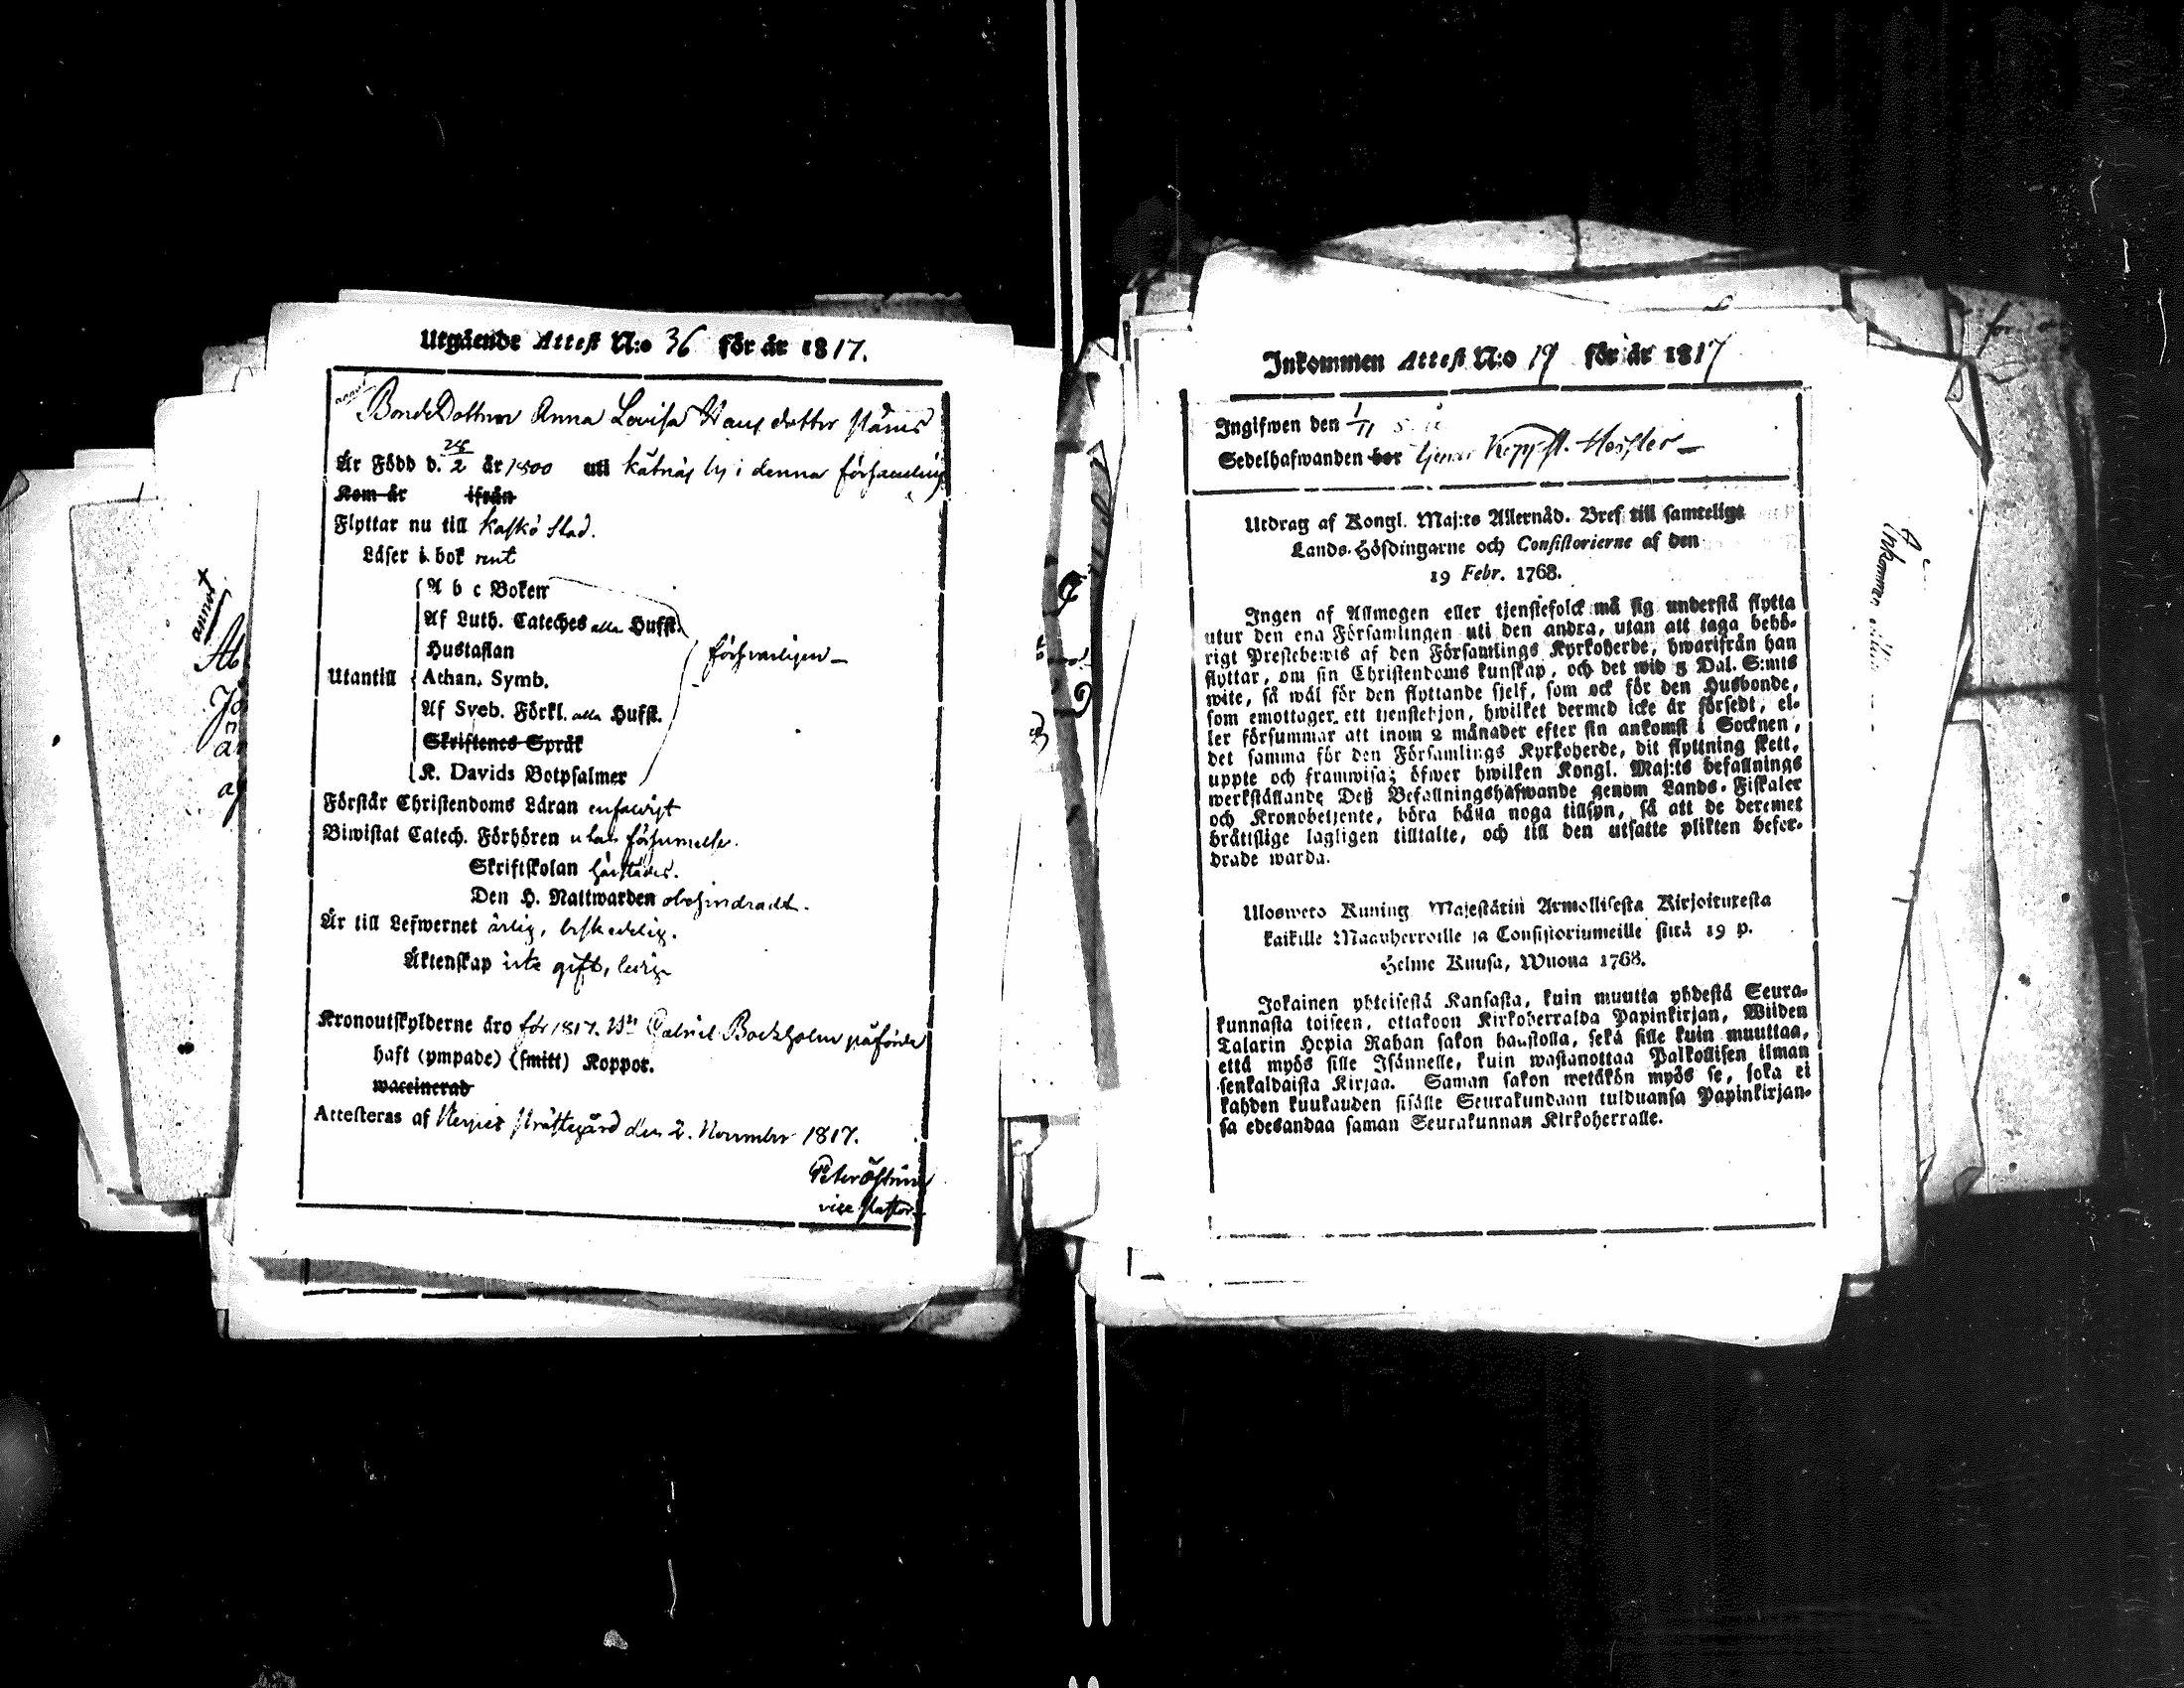 Utgående Attest N:o 36 för år 1817.
annot
BondeDottren Anna Lovisa Hans dotter
Är Född d. 28/2 år 1800 uti kåtnäs by i denna församling
Kom år ifrån
Flyttar nu till Kaskö stad.
Läser i bok rent
A b c Boken
Af Luth. Cateches alla Hufst.
Hustaflan
Utantill Athan. Symb.
försvarligen
Af Sveb. Förkl. alla Hufst.
Skriftenes Språk
K. Davids Botpsalmer
Förstår Christendoms Läran enfaldigt
Biwistat Catech. Förhören utan försummelse.
Skriftskolan härstädes.
Den H. Nattwarden obehindradt.
Är till Lefwernet ärlig, beskedelig.
Äktenskap icke gift, ledig
Kronoutskylderne äro för 1817. Gabriel Backholm påförde
haft (ympade) (smitt) Koppor.
waccinerad
Attesteras af Nerpes Prästegård den 2. November 1817.
Peter Öhman
vice Pastor
annot
Inkommen Attest N:o 19 för år 1817
Ingifwen den 1/11
Sedelhafwanden bor
Utdrag af Kongl. Maj:ts Allernåd. Bref till samtelige
Lands-Höfdingarne och Consistorierne af den
19 Febr. 1768.
Ingen af Allmogen eller tjenstefolck må sig understå flytta
utur den ena Församlingen uti den andra, utan att taga behö-
rigt Prestebewis af den Församlings Kyrkoherde, hwarifrån han
flyttar, om sin Christendoms kunskap, och det wid 5 Dal. S:mts
wite, så wäl för den flyttande sjelf, som ock för den Husbonde,
som emottager ett tjenstehjon, hwilket dermed icke är försedt, el-
ler försummar att inom 2 månader efter sin ankomst i Socknen,
det samma för den Församlings Kyrkoherde, dit flyttning skett,
uppte och framwisa; öfwer hwilken Kongl. Maj:ts befallnings
werkställande Deß Befallningshafwande genom Lands-Fiskaler
och Kronobetjente, böra hålla noga tillsyn, så att de deremet
bråttslige lagligen tilltalte, och till den utsatte plikten befor-
drade warda.
Uloswето Kuning. Majestätin Armollisesta Kirjoituxesta
kaikille Maanherroille ja Consistoriumeille siitä 19 p.
Helme Kuusa, Wuona 1768.
Jokainen yhteisestä Kansasta, kuin muutta yhdestä Seura-
kunnasta toiseen, ottakoon Kirkoherralda Papinkirjan, Wiiden
Talarin Hopia Rahan sakon haastolla, sekä sille kuin muuttaa,
että myös sille Isännelle, kuin wastanottaa Palkollisen ilman
senkaldaista Kirjaa. Saman sakon wetäkön myös se, joka ei
kahden kuukauden sisälle Seurakundaan tulduansa Papinkirjan-
sa edesandaa saman Seurakunnan Kirkoherralle.